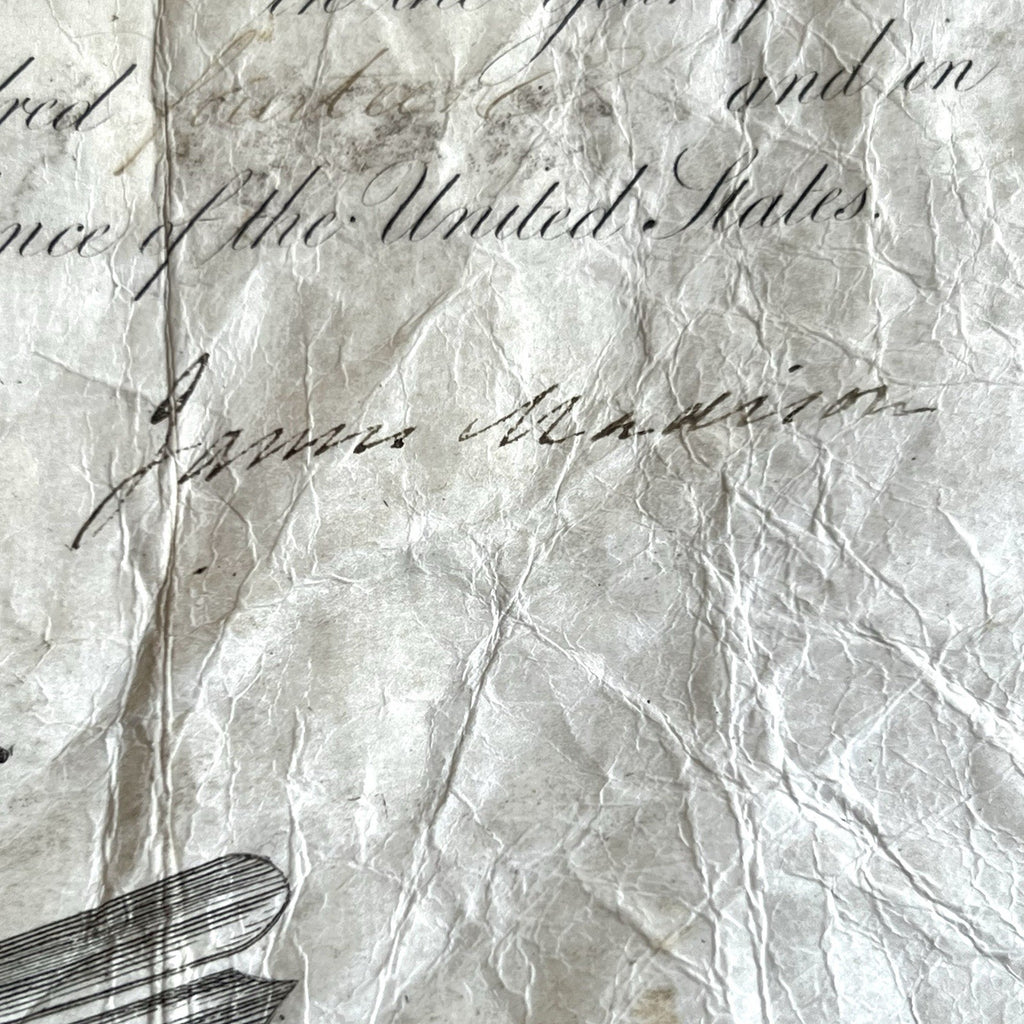 in the year of
dred fourteen and in
nce of the United States.
James Madison